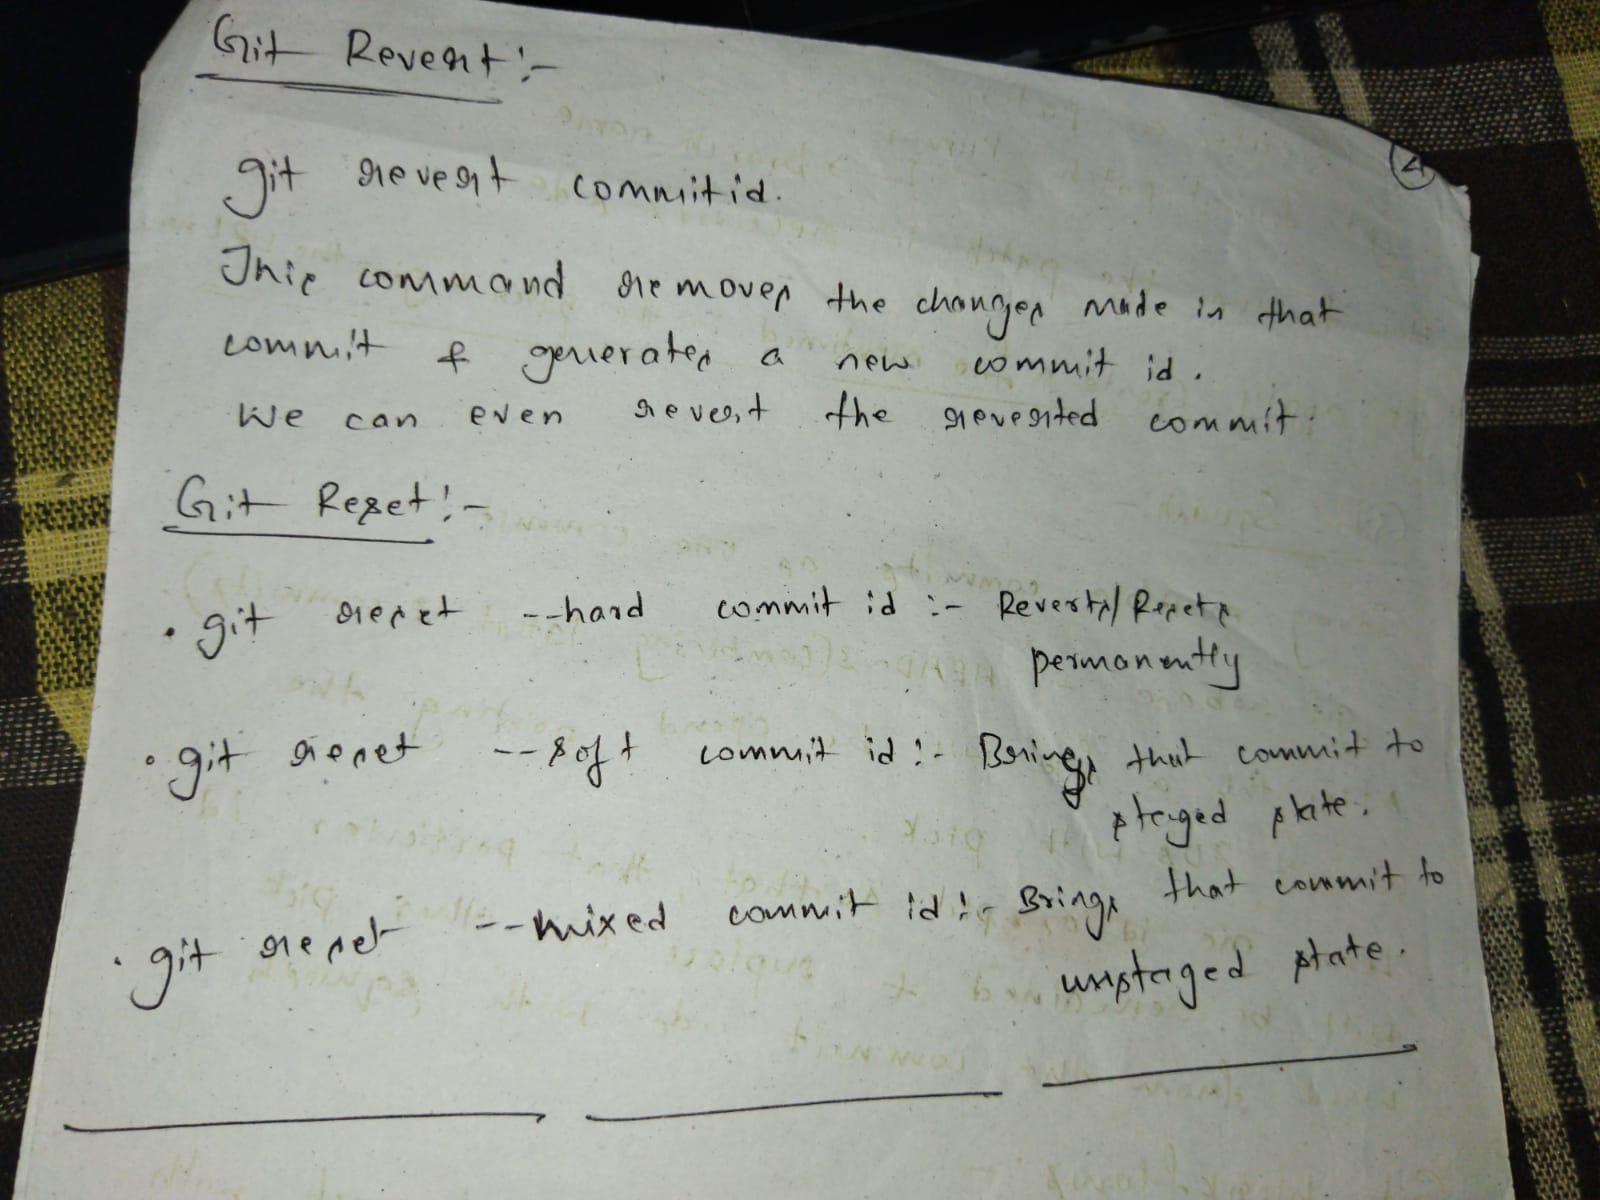 Git Revert :-
4
git revert commitid.
This command removes the changes made in that
commit & generates a new commit id.
We can even revert the reverted commit.
Git Reset :-
• git reset --hard commit id :- Reverts/Resets
permanently
• git reset --soft commit id :- Brings that commit to
staged state.
• git reset --mixed commit id :- Brings that commit to
unstaged state.